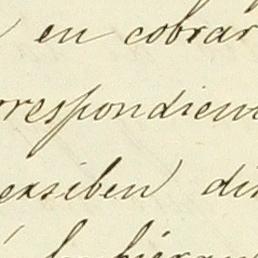 en cobrar
rrespondien
exsiben di